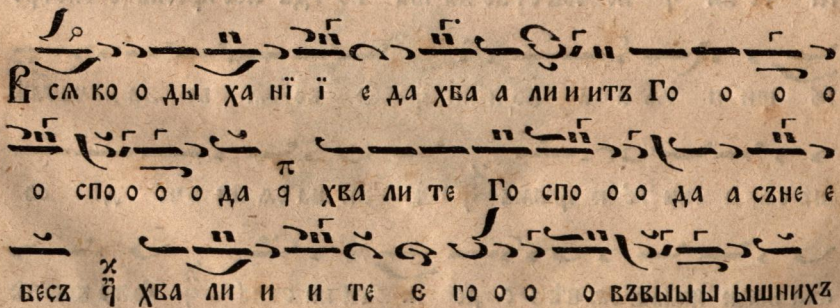 Вся ко о ды ха нї ї е да хва а ли и итъ Го о о о
о спо о о о да хвали те Го спо о о да а съне е
бесъ хва ли и и те Є го о о о въвыы ы ышнихъ